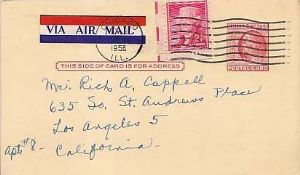 VIA AIR MAIL
1956
ILL.
THIS SIDE OF CARD IS FOR ADDRESS
POSTAL CARD
Rich A. Cappell
635 So. St. Andrews Place
Los Angeles 5
Apt #8 - California.